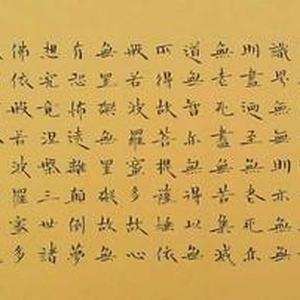 識界無無明亦無無
明盡迺至無老死亦
無老死盡無苦集滅
道無智亦無得以無
所得故菩提薩埵依
般若波羅蜜多故心
無罣礙無罣礙故無
有恐怖遠離顛倒夢
想究竟涅槃三世諸
佛依般若波羅蜜多